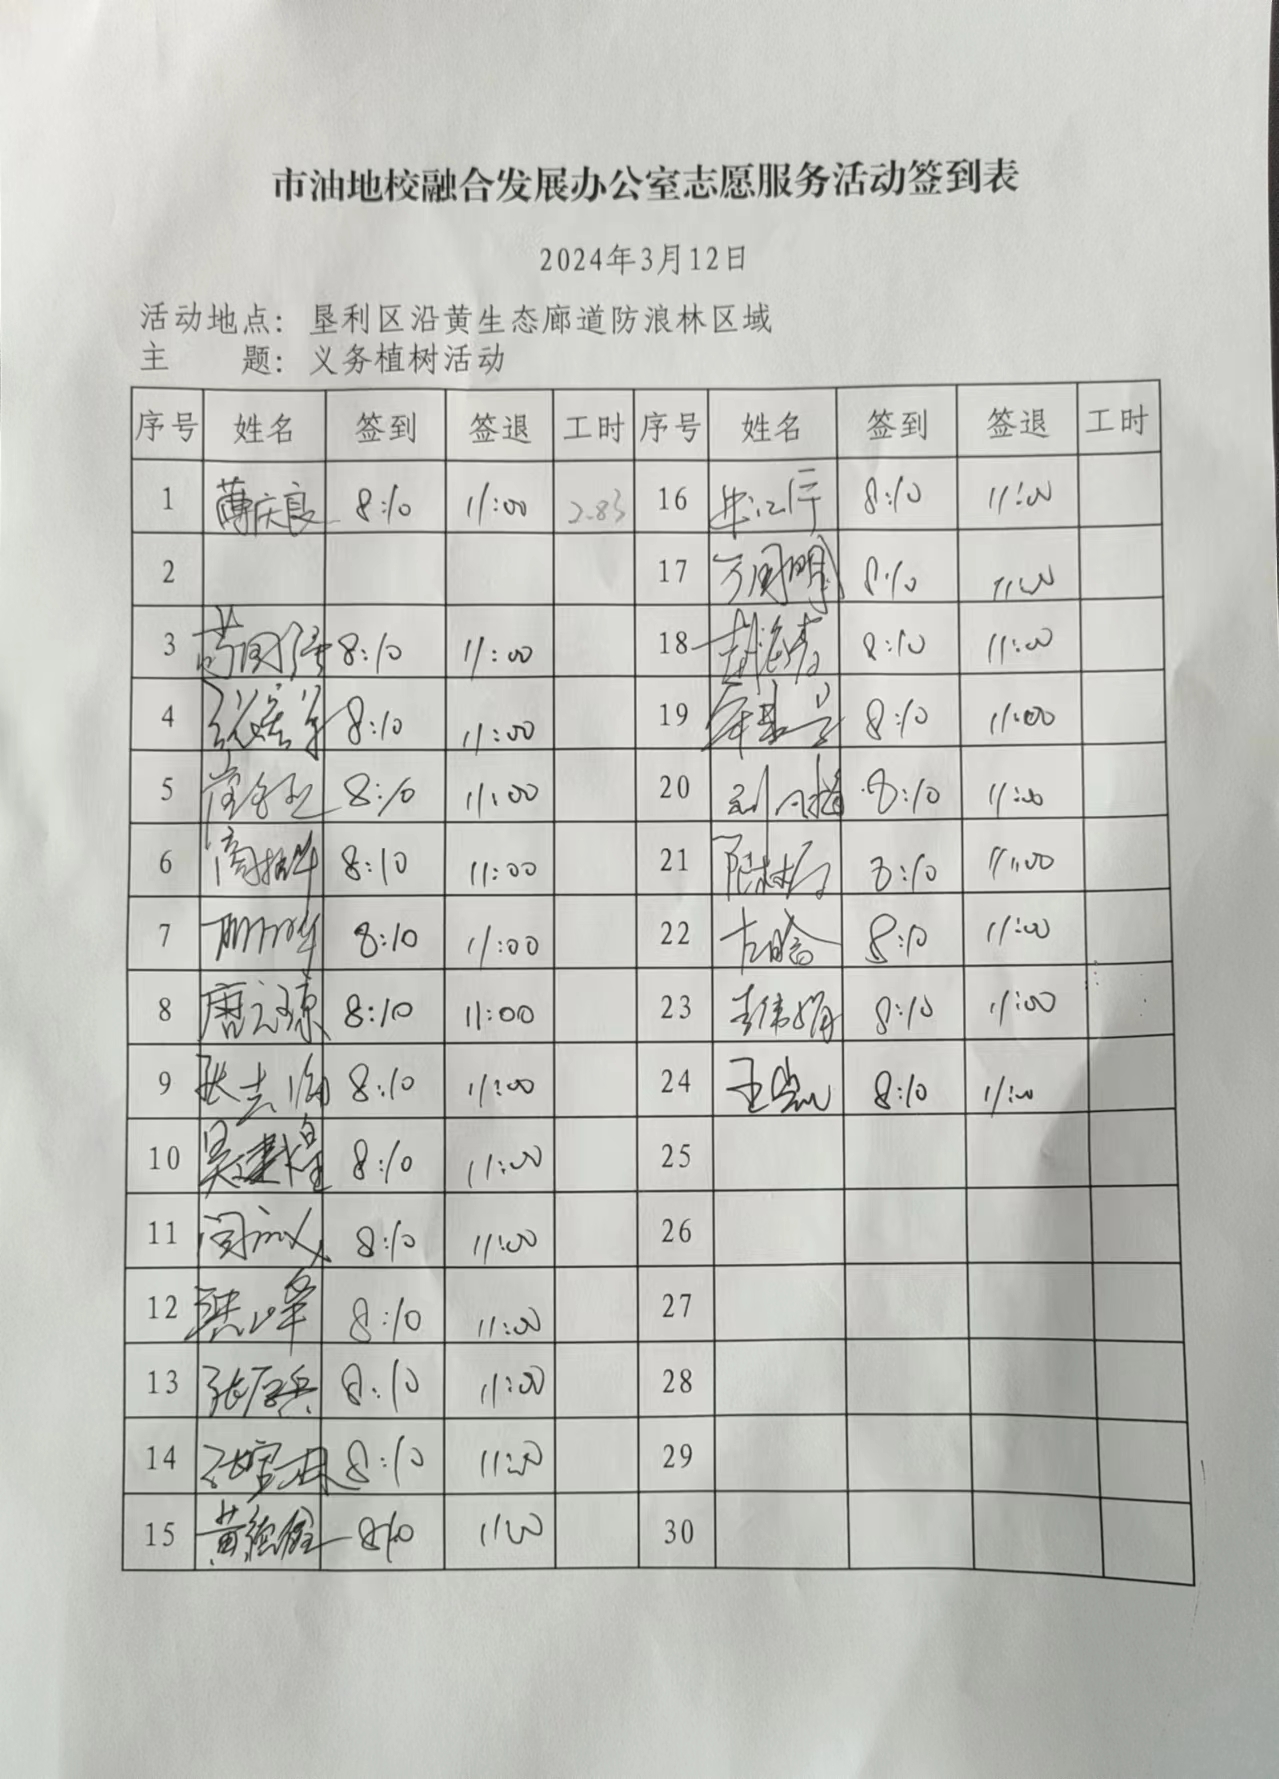 市油地校融合发展办公室志愿服务活动签到表
2024年3月12日
活动地点：垦利区沿黄生态廊道防浪林区域
主 题：义务植树活动
序号 姓名 签到 签退 工时 序号 姓名 签到 签退 工时
1 薄庆良 8:10 11:00 2.83 16 8:10 11:00
2 17 8:10 11:00
3 8:10 11:00 18 8:10 11:00
4 8:10 11:00 19 8:10 11:00
5 8:10 11:00 20 8:10 11:00
6 8:10 11:00 21 8:10 11:00
7 8:10 11:00 22 8:10 11:00
8 唐元琼 8:10 11:00 23 李伟娟 8:10 11:00
9 8:10 11:00 24 8:10 11:00
10 吴建煌 8:10 11:00 25
11 8:10 11:00 26
12 8:10 11:00 27
13 8:10 11:00 28
14 8:10 11:00 29
15 黄德健 8:10 11:00 30